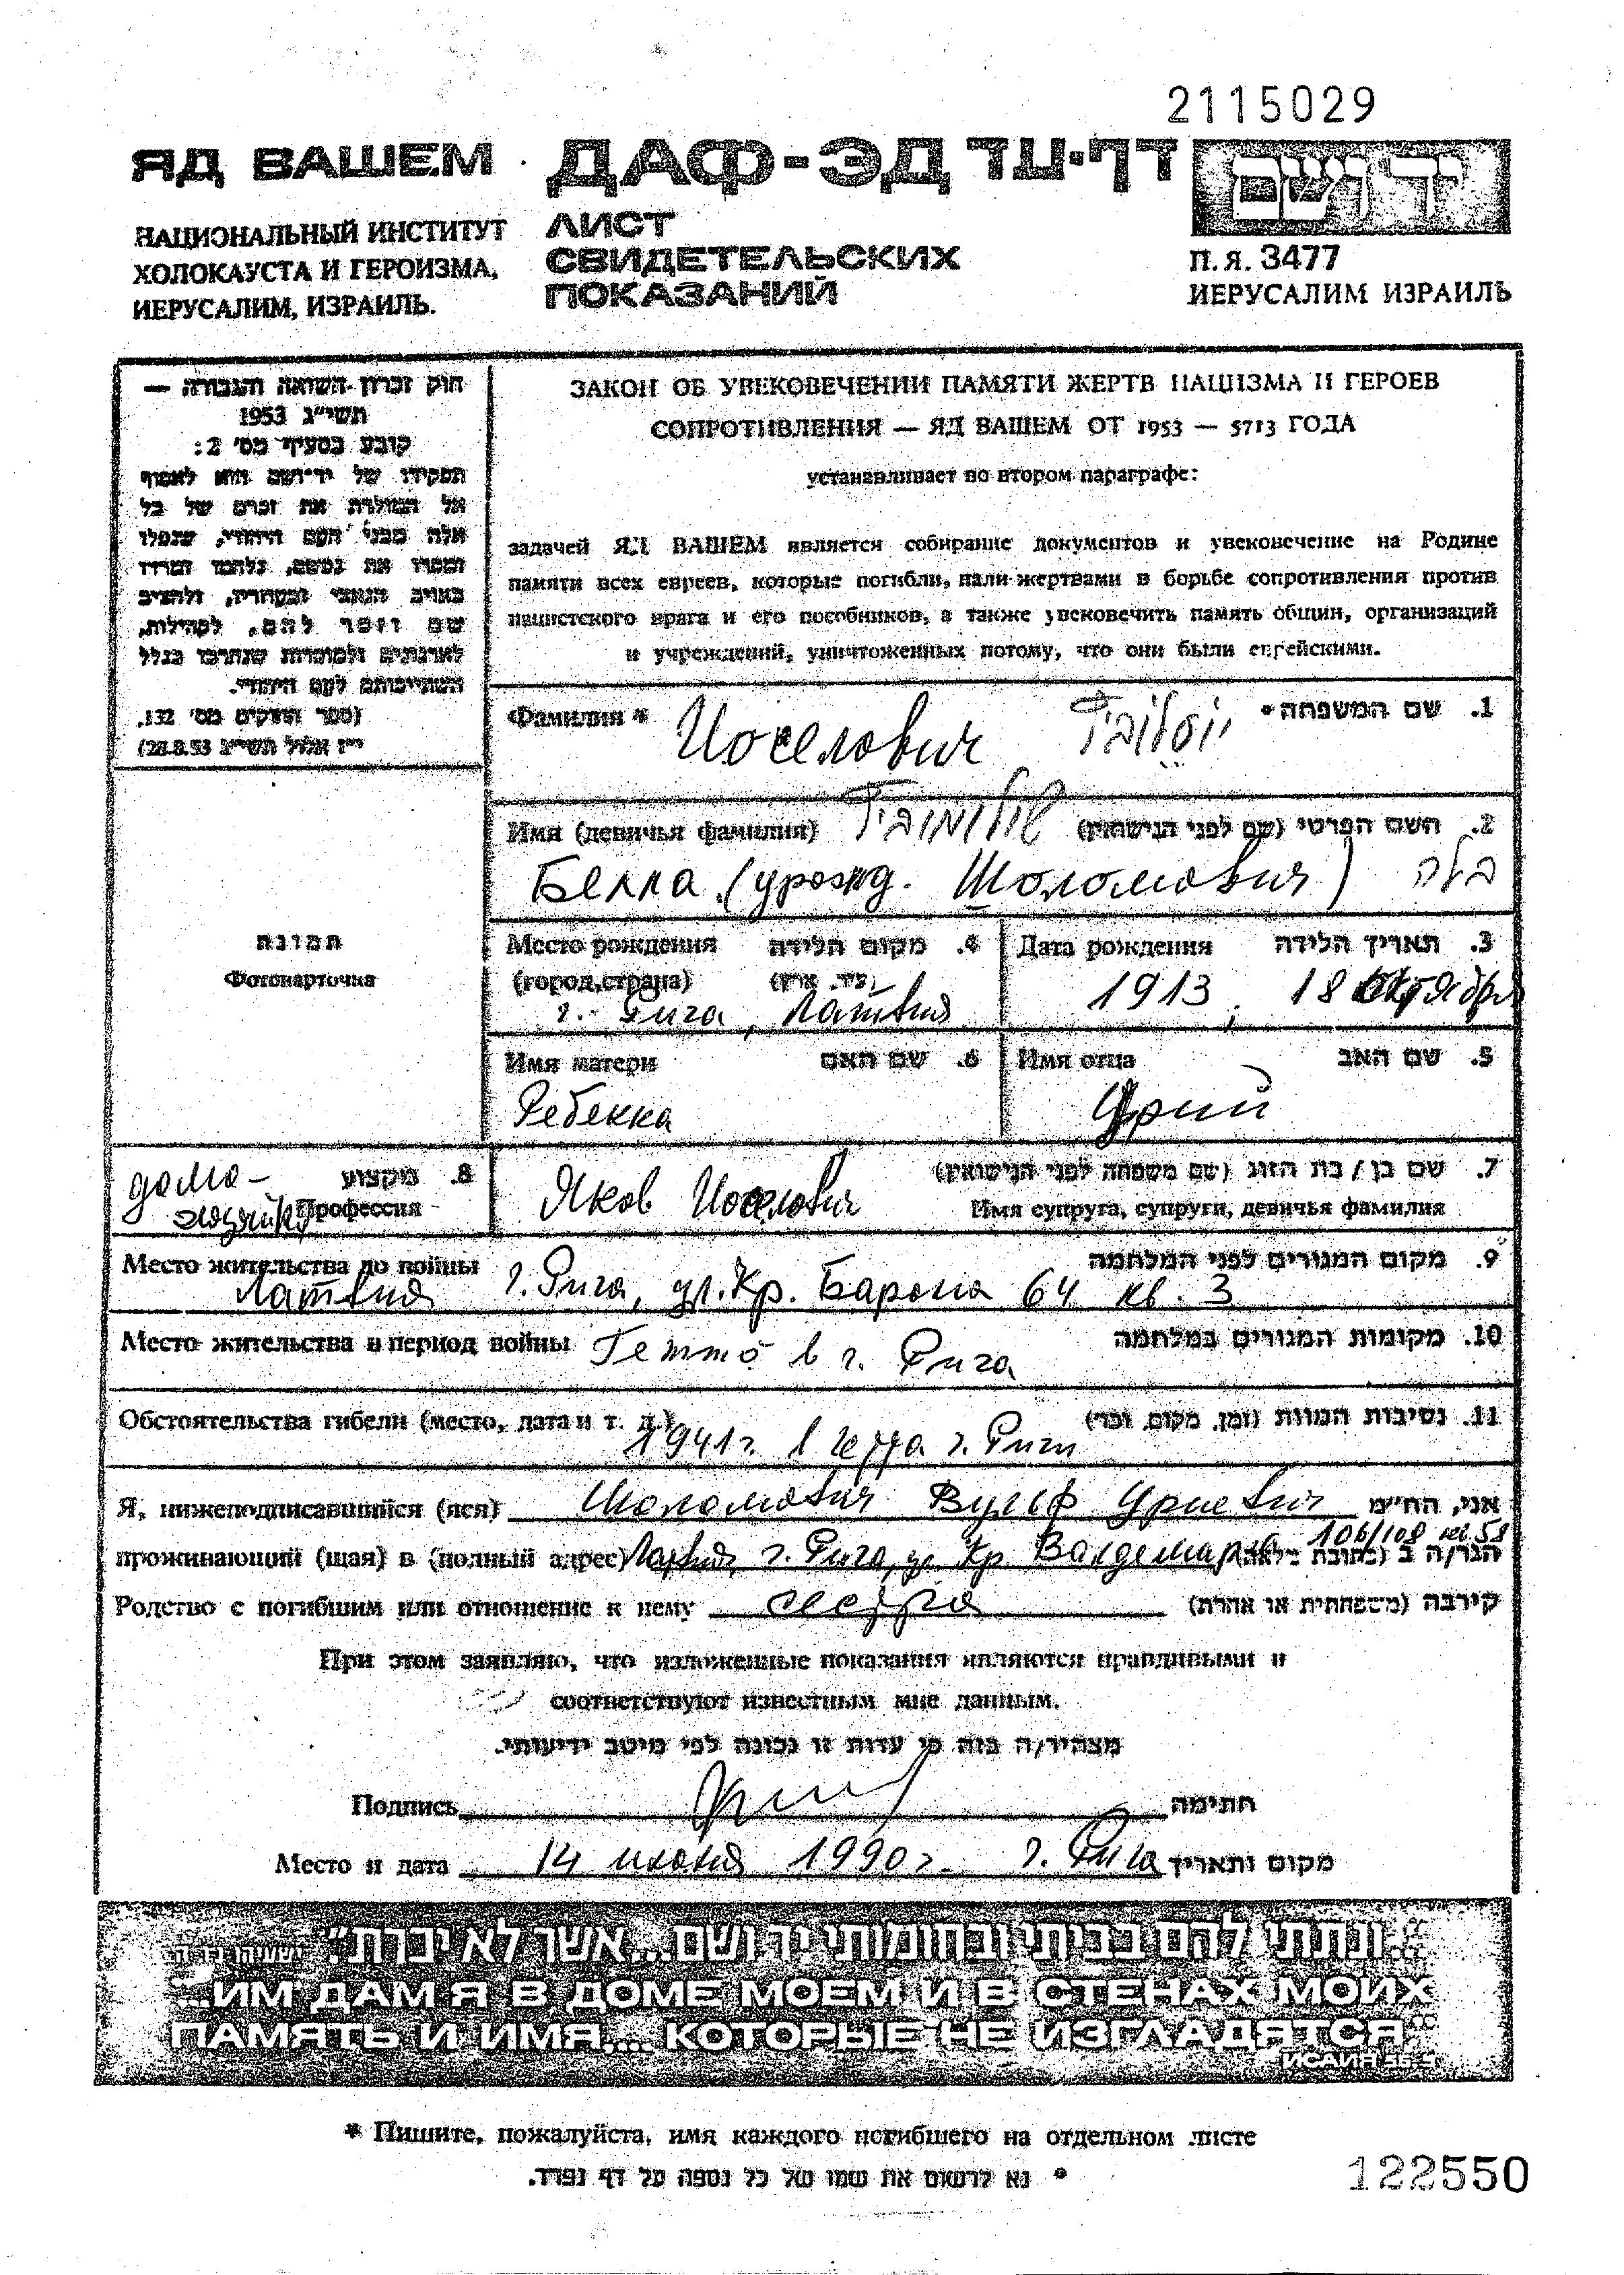 2115029
ЯД ВАШЕМ ДАФ-ЭД דף-עד יד ושם
НАЦИОНАЛЬНЫЙ ИНСТИТУТ
ХОЛОКАУСТА И ГЕРОИЗМА,
ИЕРУСАЛИМ, ИЗРАИЛЬ.
ЛИСТ
СВИДЕТЕЛЬСКИХ
ПОКАЗАНИЙ
П.Я. 3477
ИЕРУСАЛИМ ИЗРАИЛЬ
חוק זכרון השואה והגבורה —
תשי״ג 1953
קובע בסעיף מס׳ 2:
תפקידו של יד־ושם הוא לאסוף
אל המולדת את זכרם של כל
אלה מבני העם היהודי, שנפלו
ומסרו את נפשם, נלחמו ומרדו
באויב הנאצי ובעוזריו, ולהציב
שם וזכר להם, לקהילות,
לארגונים ולמוסדות שנחרבו בגלל
השתייכותם לעם היהודי.
(ספר החוקים מס׳ 132,
י״ז אלול תשי״ג 28.8.53)
ЗАКОН ОБ УВЕКОВЕЧЕНИИ ПАМЯТИ ЖЕРТВ НАЦИЗМА И ГЕРОЕВ
СОПРОТИВЛЕНИЯ — ЯД ВАШЕМ ОТ 1953 — 5713 ГОДА
устанавливает во втором параграфе:
задачей ЯД ВАШЕМ является собирание документов и увековечение на Родине
памяти всех евреев, которые погибли, пали жертвами в борьбе сопротивления против
нацистского врага и его пособников, а также увековечить память общин, организаций
и учреждений, уничтоженных потому, что они были еврейскими.
Фамилия * 1. שם המשפחה*
Иоселович יוסלוביץ
Имя (девичья фамилия) שולומוביץ 2. השם הפרטי (שם לפני הנישואין)
Белла (урожд. Шоломович) בלה
תמונה
Фотокарточка
Место рождения 4. מקום הלידה
(город,страна) (עיר, ארץ)
г. Рига, Латвия
Дата рождения 3. תאריך הלידה
1913, 18 октября
Имя матери 6. שם האם
Ребекка
Имя отца 5. שם האב
Урий
домо- 8. מקצוע
хозяйка Профессия
7. שם בן / בת הזוג (שם משפחה לפני הנישואין)
Яков Иоселович Имя супруга, супруги, девичья фамилия
Место жительства до войны 9. מקום המגורים לפני המלחמה
Латвия г. Рига, ул. Кр. Барона 64 кв. 3
Место жительства в период войны 10. מקומות המגורים במלחמה
Гетто в г. Рига
Обстоятельства гибели (место, дата и т. д.) 11. נסיבות המוות (זמן, מקום, וכו׳)
1941г. в гетто г. Риги
Я, нижеподписавшийся (аяся) Шоломович Вульф Уриевич אני, הח״מ
проживающий (щая) в (полный адрес) Латвия, г. Рига, ул. Кр. Валдемара 106/108 кв. 58 הגר/ה ב (כתובת מלאה)
Родство с погибшим или отношение к нему сестра קירבה (משפחתית או אחרת)
При этом заявляю, что изложенные показания являются правдивыми и
соответствуют известным мне данным.
מצהיר/ה בזה כי עדות זו נכונה לפי מיטב ידיעותי.
Подпись חתימה
Место и дата 14 июня 1990г. г. Рига מקום ותאריך
״...ונתתי להם בביתי ובחומותי יד ושם...אשר לא יכרת״. ישעיהו נו, ה
"...ИМ ДАМ Я В ДОМЕ МОЕМ И В СТЕНАХ МОИХ
ПАМЯТЬ И ИМЯ.... КОТОРЫЕ НЕ ИЗГЛАДЯТСЯ."
ИСАИЯ 56,5
* Пишите, пожалуйста, имя каждого погибшего на отдельном листе
* נא לרשום את שמו של כל נספה על דף נפרד.
122550